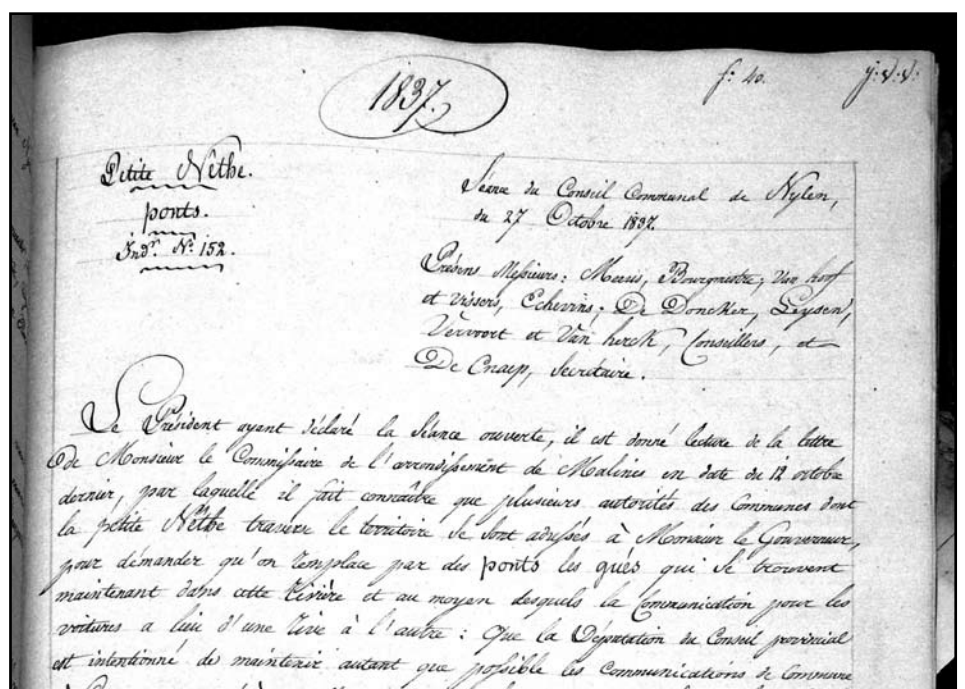 1837.
f: 40.
Petite Nèthe.
ponts.
Indr. No. 152.
Séance du Conseil Communal de Nylen,
du 27 Octobre 1837.
Présens Messieurs: Meeus, Bourgmestre; Van hoof
et vissers, Echevins; De Doncker, Leysen,
Vervoort et Van herck, Conseillers, et
De Cnaep, Secrétaire.
Le Président ayant déclaré la séance ouverte, il est donné lecture de la lettre
de Monsieur le Commissaire de l'arrondissement de Malines en date du 12 octobre
dernier, par laquelle il fait connaître que plusieurs autorités des Communes dont
la petite Nèthe traverse le territoire se sont adressés à Monsieur le Gouverneur,
pour démander qu'on remplace par des ponts les gués qui se trouvent
maintenant dans cette rivière et au moyen desquels la Communication pour les
voitures a lieu d'une rive à l'autre: Que la Députation du Conseil provincial
est intentionné de maintenir autant que possible les Communications de Commune